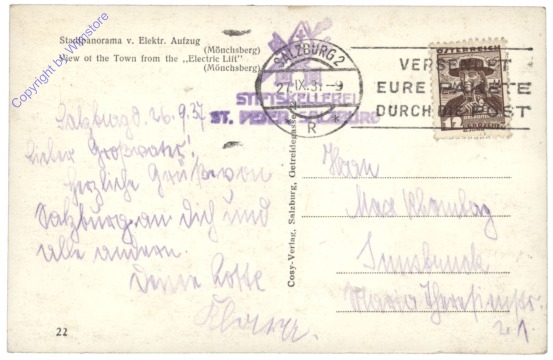 Stadtpanorama v. Elektr. Aufzug
(Mönchsberg)
View of the Town from the „Electric Lift"
(Mönchsberg)
Copyright by Wienstore
SALZBURG 2
27.IX.37-9
R
VERSENDET
EURE PAKETE
DURCH DIE POST
ÖSTERREICH
12 GROSCHEN
STIFTSKELLEREI
ST. PETER, SALZBURG
Salzburg d. 26.9.37
Lieber Großvater!
Herzliche Grüße von
Salzburg an Dich und
alle andern.
Deine
Cosy-Verlag, Salzburg, Getreidegasse
Herrn
Max
Innsbruck
Maria Theresienstr.
21
22